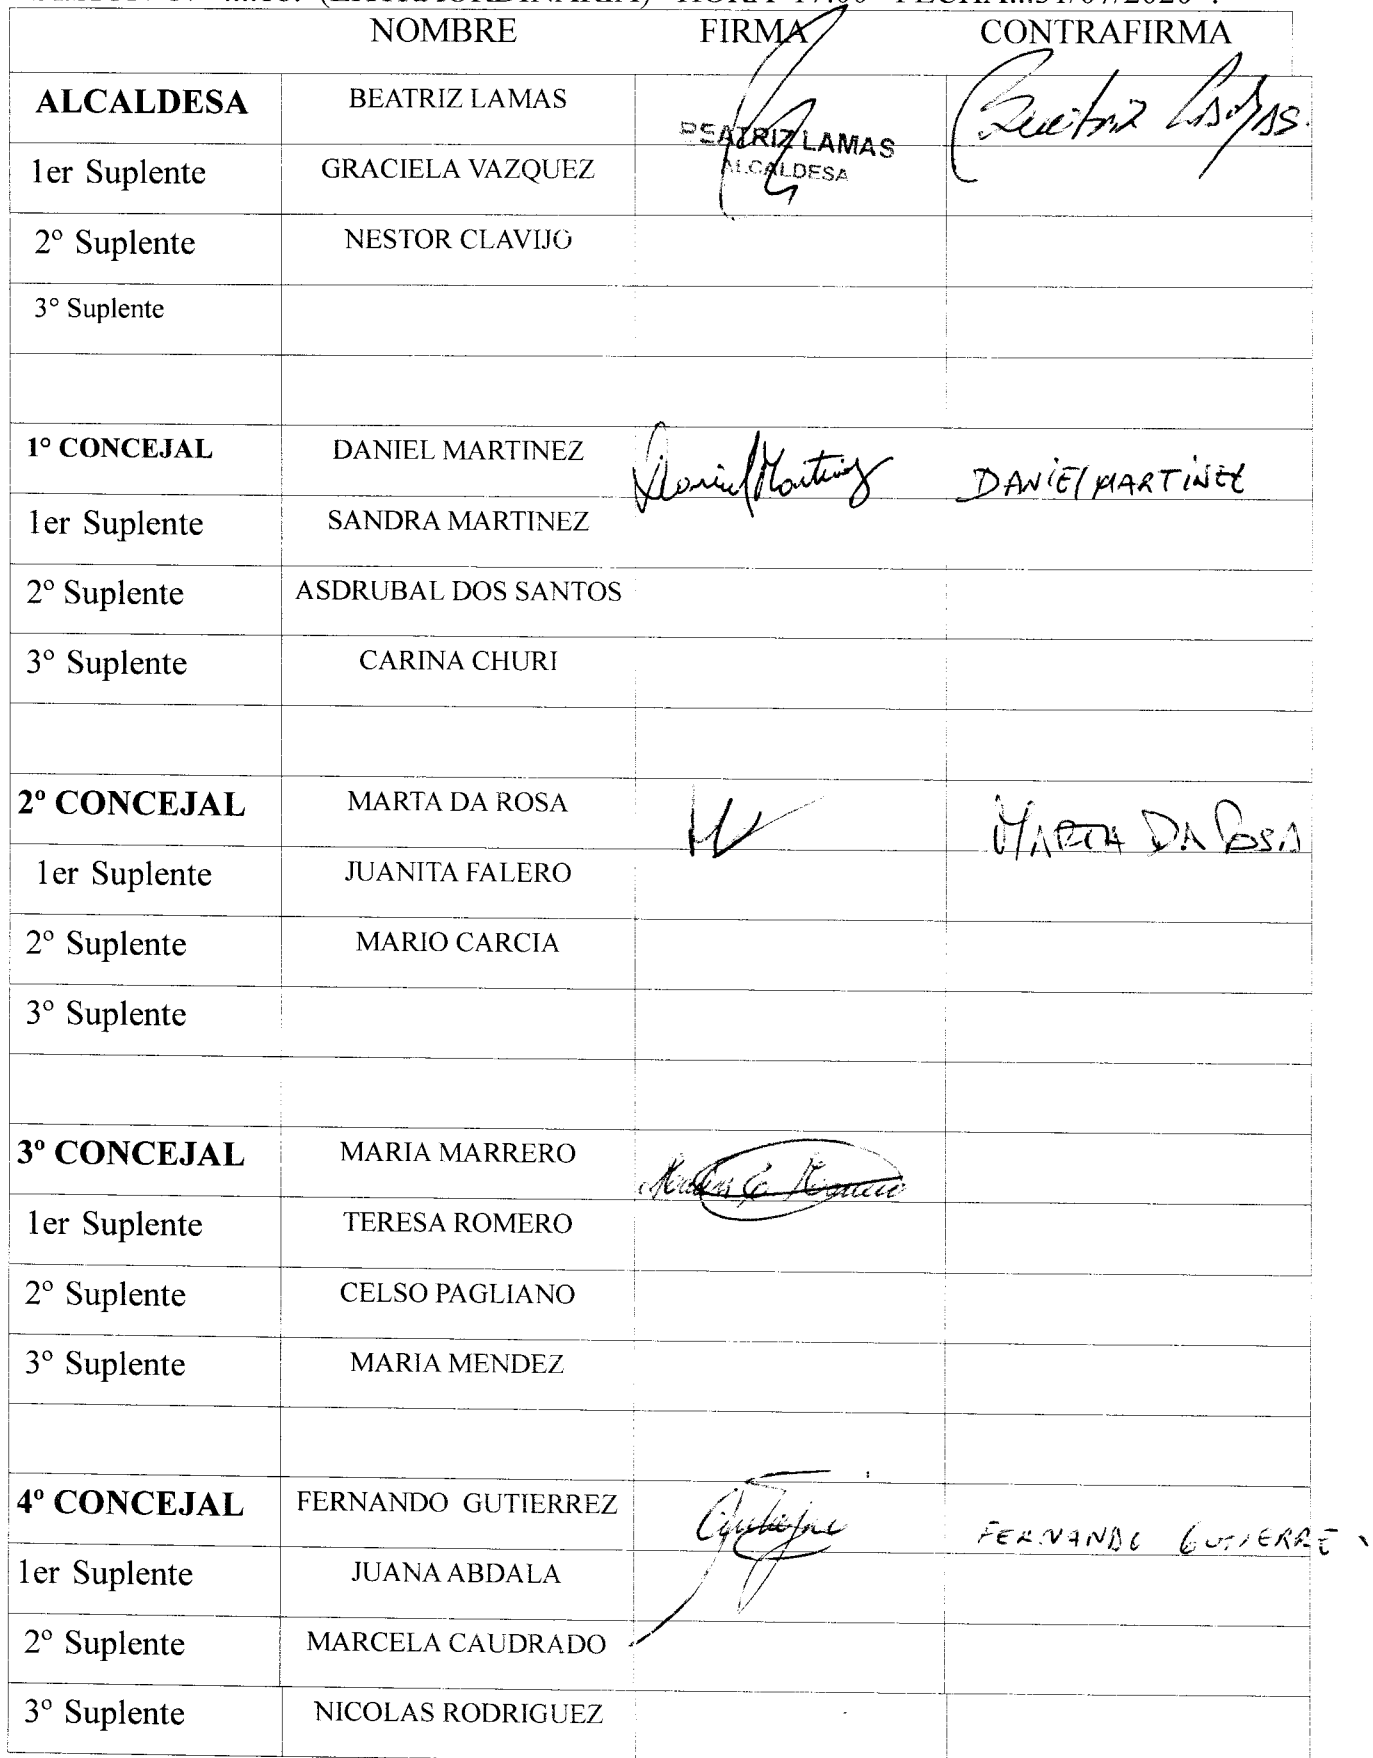 (EXTRAORDINARIA) HORA 17:00 FECHA...31/07/2020 .
NOMBRE FIRMA CONTRAFIRMA
ALCALDESA BEATRIZ LAMAS BEATRIZ LAMAS Beatriz LAMAS.
ALCALDESA
1er Suplente GRACIELA VAZQUEZ
2º Suplente NESTOR CLAVIJO
3° Suplente
1° CONCEJAL DANIEL MARTINEZ Daniel Martinez DANIEL MARTINEZ
1er Suplente SANDRA MARTINEZ
2º Suplente ASDRUBAL DOS SANTOS
3º Suplente CARINA CHURI
2º CONCEJAL MARTA DA ROSA MARTA DA ROSA
1er Suplente JUANITA FALERO
2º Suplente MARIO CARCIA
3º Suplente
3º CONCEJAL MARIA MARRERO
1er Suplente TERESA ROMERO
2º Suplente CELSO PAGLIANO
3º Suplente MARIA MENDEZ
4º CONCEJAL FERNANDO GUTIERREZ FERNANDO GUTIERRE
1er Suplente JUANA ABDALA
2º Suplente MARCELA CAUDRADO
3º Suplente NICOLAS RODRIGUEZ